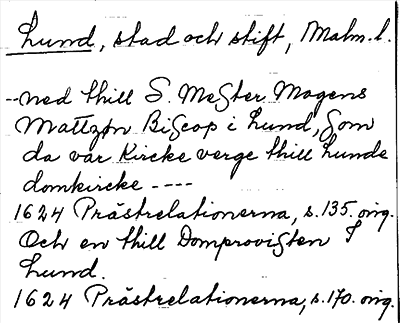 Lund, stad och stift, Malm. l.
--ned thill S. Mester Mogens
Mattzøn Biscop i Lund, som
da var Kircke verge thill Lunde
domkircke ----
1624 Prästrelationerna, s. 135. orig.
Och en thill Domprovisten I
Lund.
1624 Prästrelationerna, s. 170. orig.